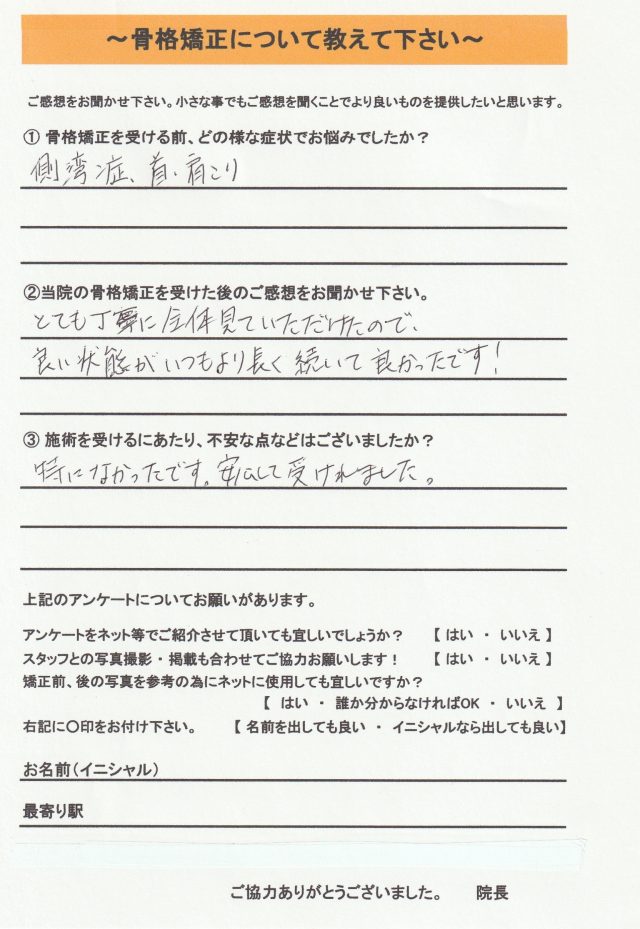 ～骨格矯正について教えて下さい～
ご感想をお聞かせ下さい。小さな事でもご感想を聞くことでより良いものを提供したいと思います。
① 骨格矯正を受ける前、どの様な症状でお悩みでしたか？
側湾症、首・肩こり
②当院の骨格矯正を受けた後のご感想をお聞かせ下さい。
とても丁寧に全体見ていただけたので、
良い状態がいつもより長く続いて良かったです！
③ 施術を受けるにあたり、不安な点などはございましたか？
特になかったです。安心して受けれました。
上記のアンケートについてお願いがあります。
アンケートをネット等でご紹介させて頂いても宜しいでしょうか？ 【 はい ・ いいえ 】
スタッフとの写真撮影・掲載も合わせてご協力お願いします！ 【 はい ・ いいえ 】
矯正前、後の写真を参考の為にネットに使用しても宜しいですか？
【 はい ・ 誰か分からなければOK ・ いいえ 】
右記に〇印をお付け下さい。 【 名前を出しても良い ・ イニシャルなら出しても良い】
お名前（イニシャル）
最寄り駅
ご協力ありがとうございました。 院長